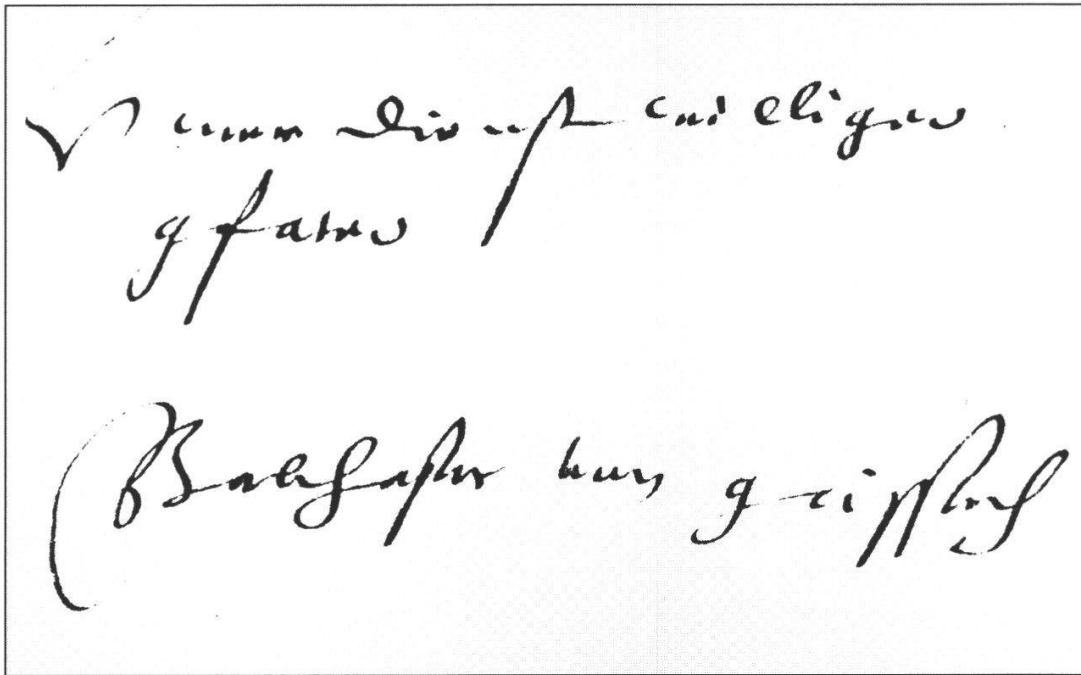 dienst williger
gfater
Balthasar von grissach